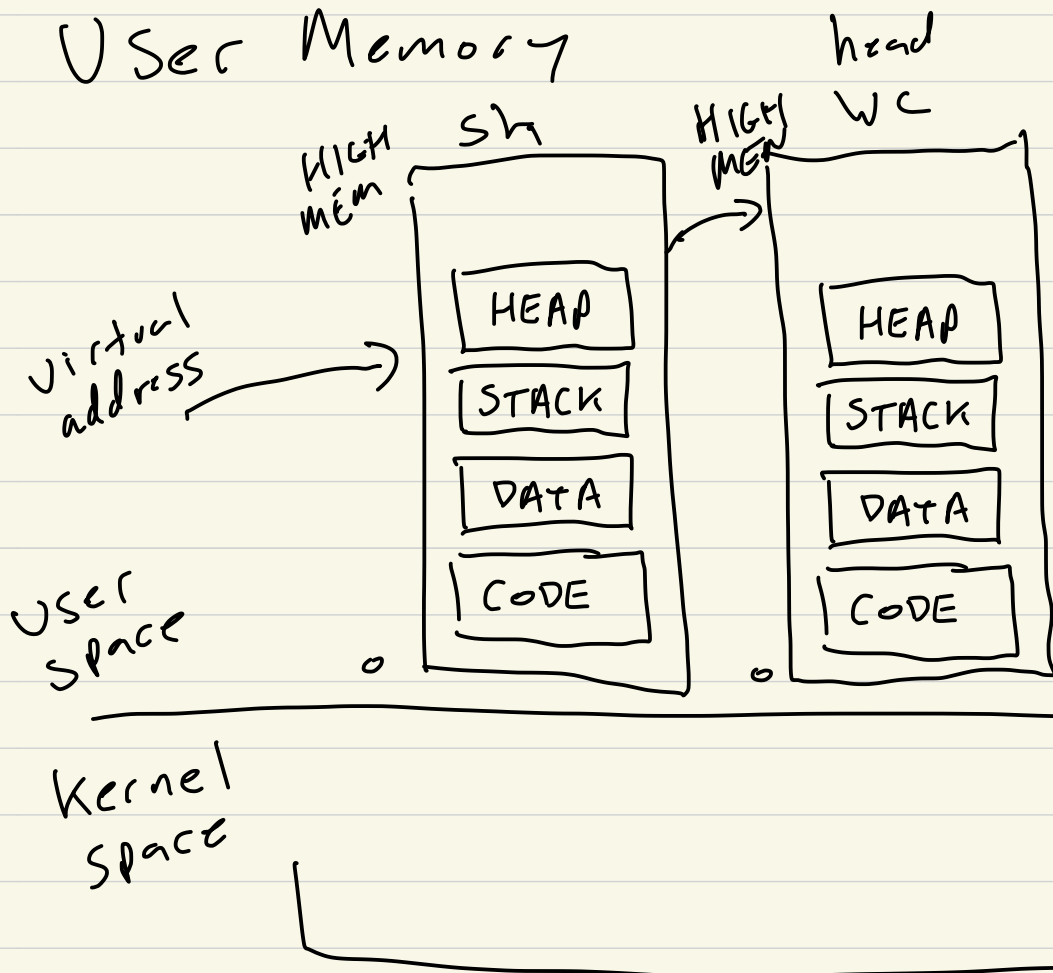 User Memory
head
wc
sh
HIGH
MEM
HIGH
MEM
virtual
address
HEAP
STACK
DATA
CODE
0
HEAP
STACK
DATA
CODE
0
User
space
Kernel
space